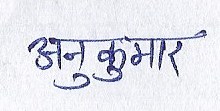 अनुकुमार